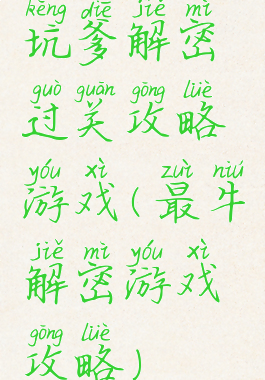 kēng diē jiě mì
坑爹解密
guò guān gōng lüè
过关攻略
yóu xì zuì niú
游戏(最牛
jiě mì yóu xì
解密游戏
gōng lüè
攻略)